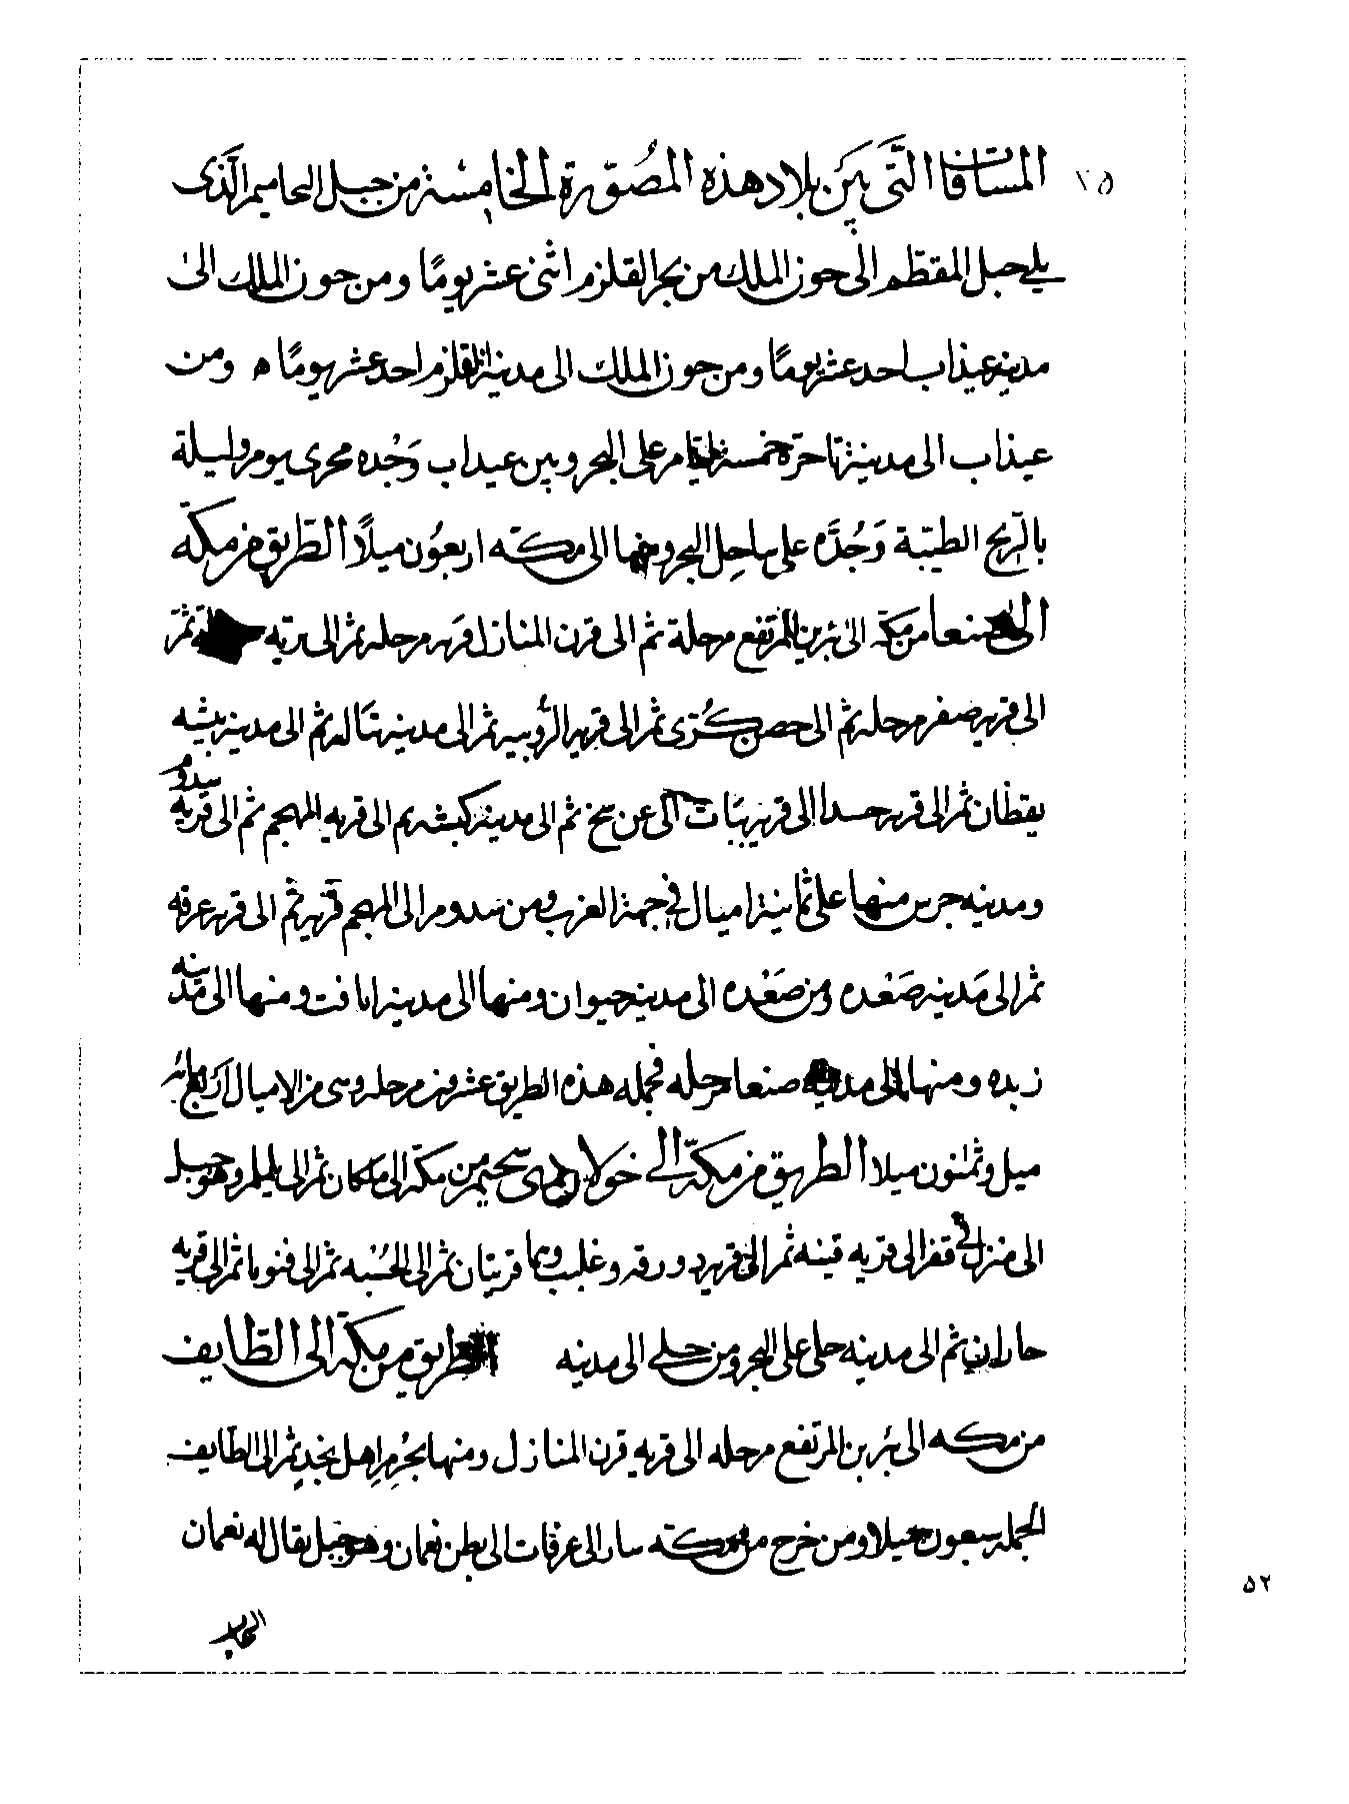 ٢٥
المسافات التي بين بلاد هذه المصورة الخامسة من جبل الحاميم الذى
يلي جبل المقطم الى جون الملك من بحر القلزم اثنى عشر يومًا ومن جون الملك الى
مدينه عيذاب احد عشر يومًا ومن جون الملك الى مدينة القلزم احد عشر يومًا ه ومن
عيذاب الى مدينة خمسة ايام على البحر وبين عيداب وجده مجرى يوم وليلة
بالريح الطيبة وَجُدَّه على ساحل البحر ومنها الى مكه اربعون ميلاً الطريق من مكة
الى صنعا من مكه الى بئر بن المرتفع مرحلة ثم الى قرن المنازل قريه مرحله ثم الى ثم
الى قريه صفر مرحله ثم الى حصن كُرَى ثم الى قريه الرُويبه ثم الى مدينه تباله ثم الى مدينه بيشه
يقطان ثم الى قريه حسدا الى قريه بنات ثم الى مدينه كبشه ثم الى قريه المهجم ثم الى قريه سدوم
ومدينه جرس منها على ثمانية اميال في جهة الغرب ومن سدوم الى المهجم قريه ثم الى قريه عرقه
ثم الى مَدينه صَعْده ومن صَعْده الى مدينه خيوان ومنها الى مدينه اثافت ومنها الى مدينه
زبده ومنها الى مدينه صنعا مرحله فجمله هذه الطريق عشرون مرحله وهى من الاميال اربع مائه
ميل وثمنون ميلا الطريق من مكة الى خولان ذى سحيم من مكة الى ملكان ثم الى يلملم وهو جبل
الى منزل فى قفر الى قريه قينه ثم الى قريه دورقه وغليب وهما قريتان ثم الى الحَسَبه ثم الى قنونا ثم الى قريه
ثم الى مدينه حلى على البحر ومن حلي الى مدينه الطريق من مكة الى الطايف
من مكه الى بئر بن المرتفع مرحله الى قريه قرن المنازل ومنها يُحرِم اهل نجد ثم الى الطايف
الجمله سبعون ميلا ومن خرج من مكه سار الى عرفات الى بطن نعمان وهو جبل يقال له نعمان
٥٢